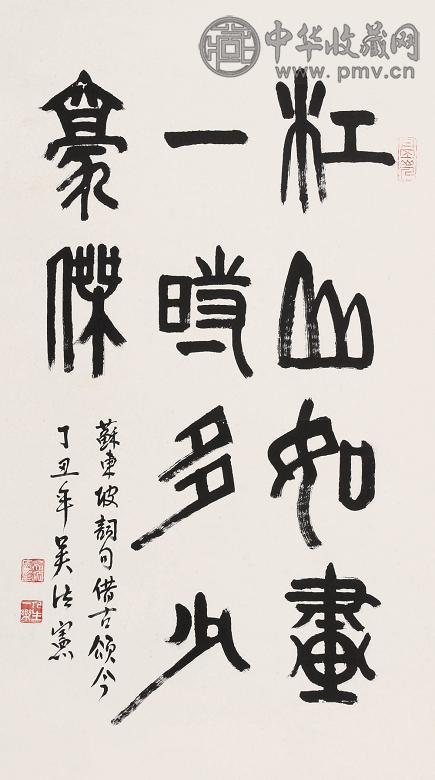 中华收藏网
www.pmv.cn
江山如畫
一時多少
豪傑
蘇東坡詞句借古頌今
丁丑年吴法憲